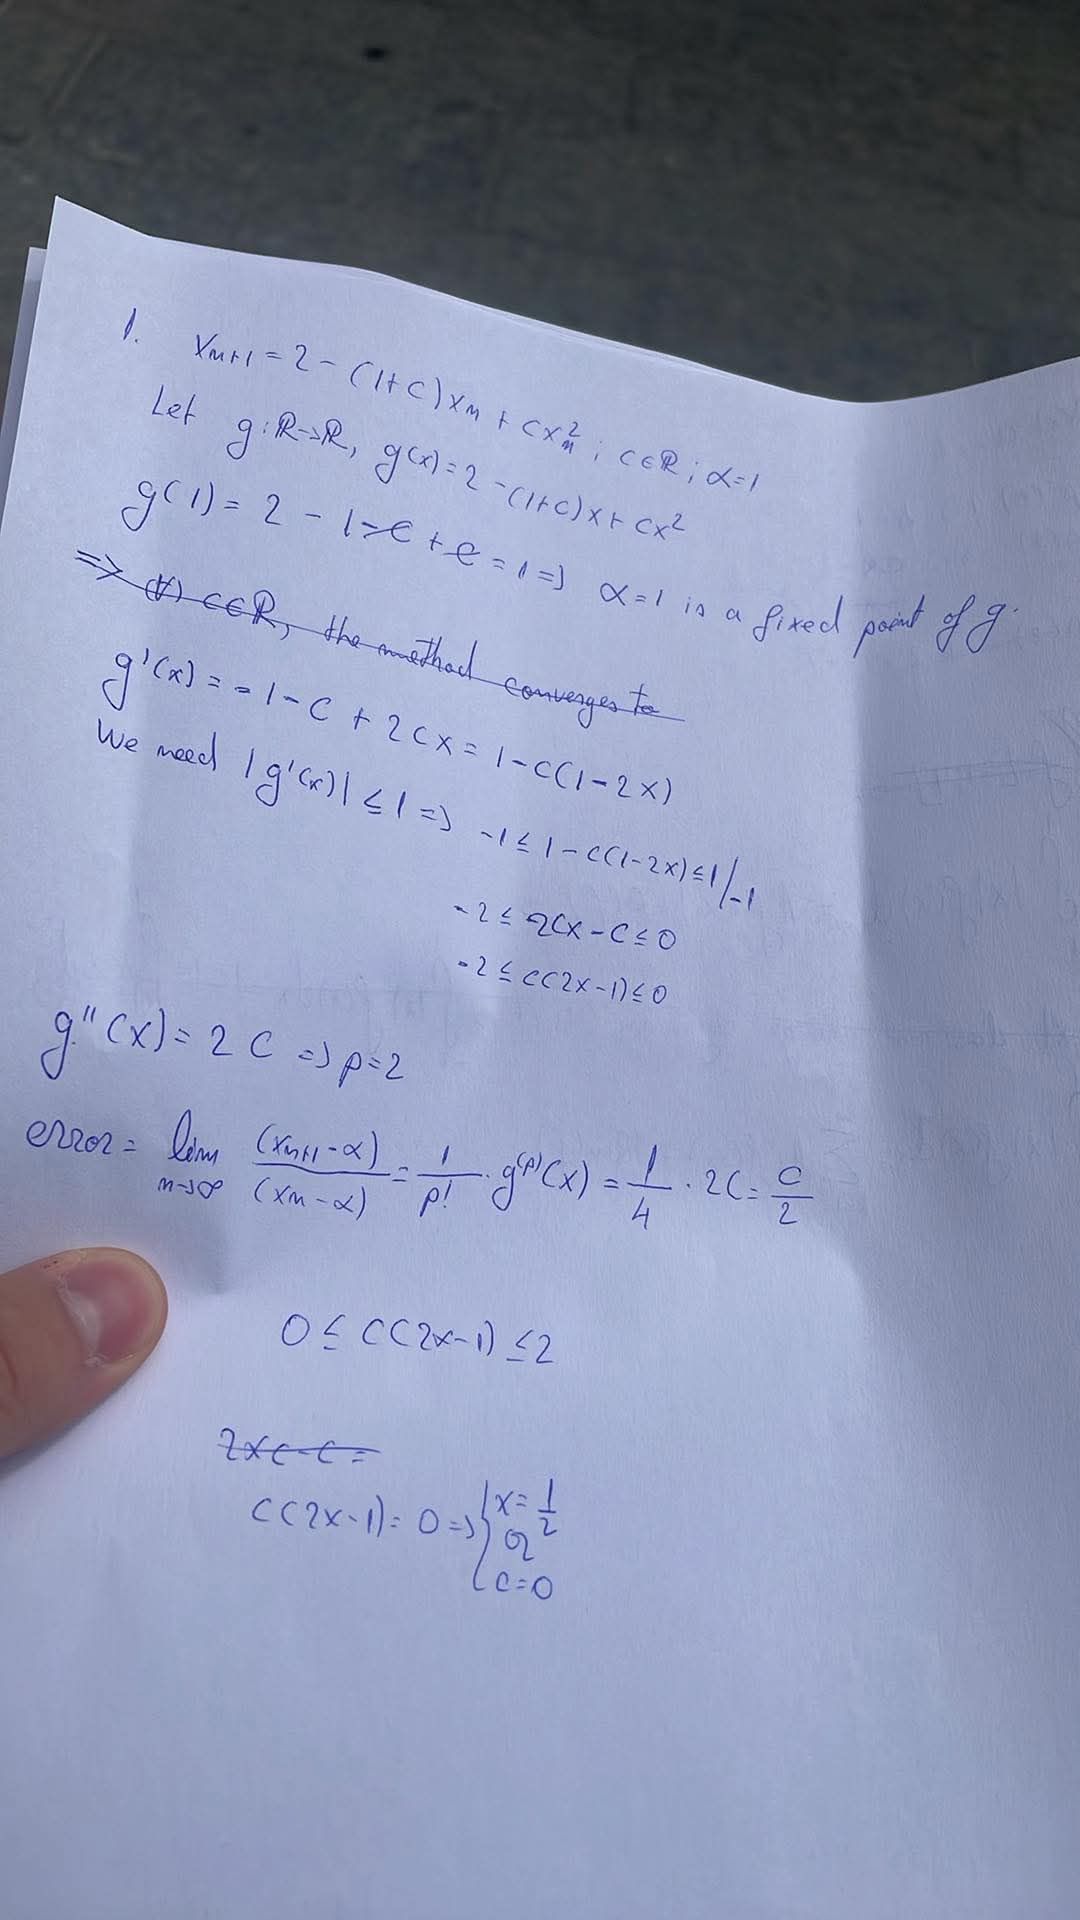 1. x_{n+1} = 2 - (1+c)x_n + cx_n^2 ; c∈ℝ ; α=1
Let g:ℝ→ℝ, g(x) = 2 - (1+c)x + cx^2
g(1) = 2 - 1 - c + c = 1 => α=1 is a fixed point of g.
=> (∀) c∈ℝ, the method converges to
g'(x) = -1 - c + 2cx = 1 - c(1-2x)
We need |g'(x)| ≤ 1 => -1 ≤ 1 - c(1-2x) ≤ 1 /-1
-2 ≤ 2cx - c ≤ 0
-2 ≤ c(2x-1) ≤ 0
g''(x) = 2c => p=2
error = lim_{n→∞} (x_{n+1} - α)/(x_n - α) = 1/p! · g^{(p)}(x) = 1/4 · 2c = c/2
0 ≤ c(2x-1) ≤ 2
2xc - c =
c(2x-1) = 0 => { x = 1/2
or
c=0